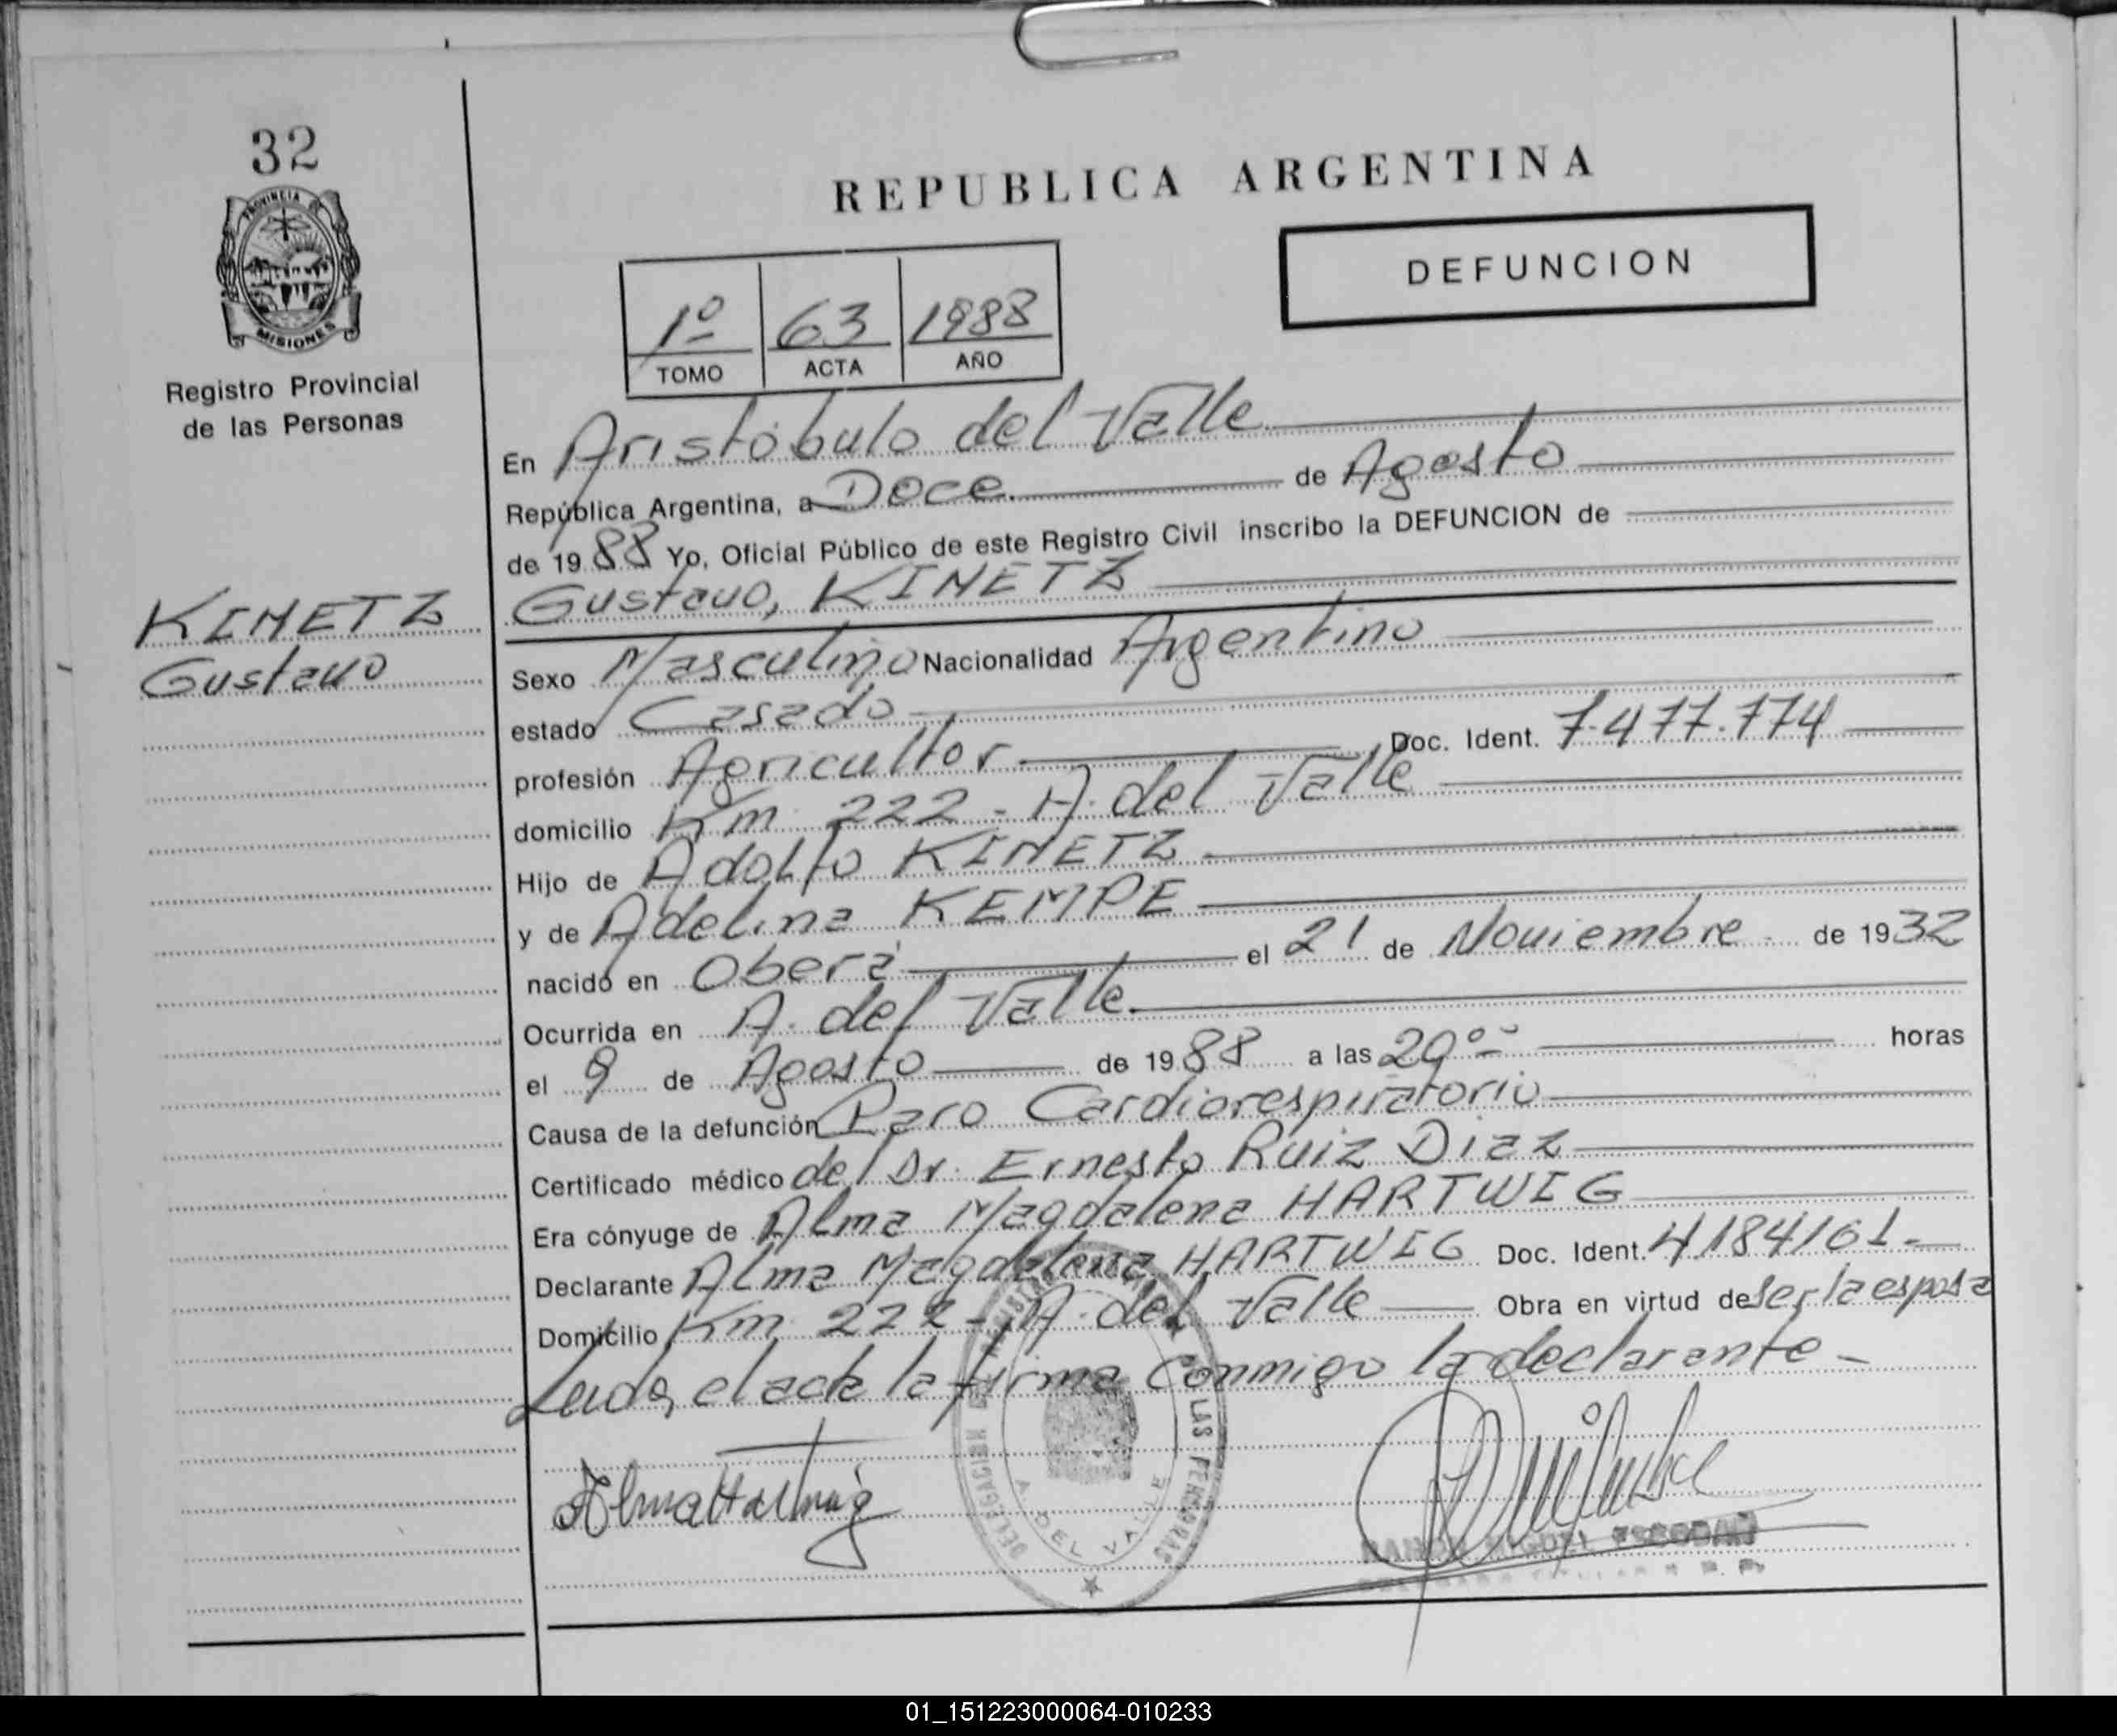 32
PROVINCIA DE
MISIONES
Registro Provincial
de las Personas
REPUBLICA ARGENTINA
DEFUNCION
1º 63 1988
TOMO ACTA AÑO
En Aristóbulo del Valle
República Argentina, a Doce de Agosto
de 1988 Yo, Oficial Público de este Registro Civil inscribo la DEFUNCION de
KINETZ
Gustavo
Gustavo, KINETZ
Sexo Masculino Nacionalidad Argentino
estado Casado
profesión Agricultor Doc. Ident. 7.477.774
domicilio Km 222 - A. del Valle
Hijo de Adolfo KINETZ
y de Adelina KEMPE
nacido en Oberá el 21 de Noviembre de 1932
Ocurrida en A. del Valle
el 9 de Agosto de 1988 a las horas
Causa de la defunción Paro Cardiorespiratorio
Certificado médico del Dr. Ernesto Ruiz Diaz
Era cónyuge de Alma Magdalena HARTWIG
Declarante Alma Magdalena HARTWIG Doc. Ident. 4184161.-
Domicilio Km 222 - A. del Valle Obra en virtud de ser la esposa
Leida el acta la firma conmigo la declarante -
Alma Hartwig
DELEGACION LAS PERSONAS
A. DEL VALLE
RAMON MIGUEL ESCOBAR
01_151223000064-010233